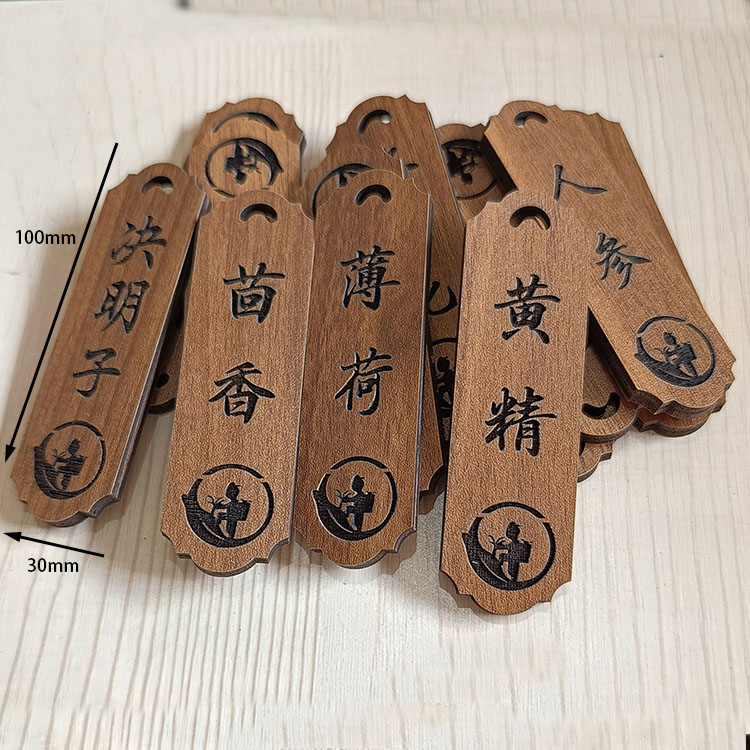 100mm
30mm
决明子
茴香
薄荷
黄精
人参